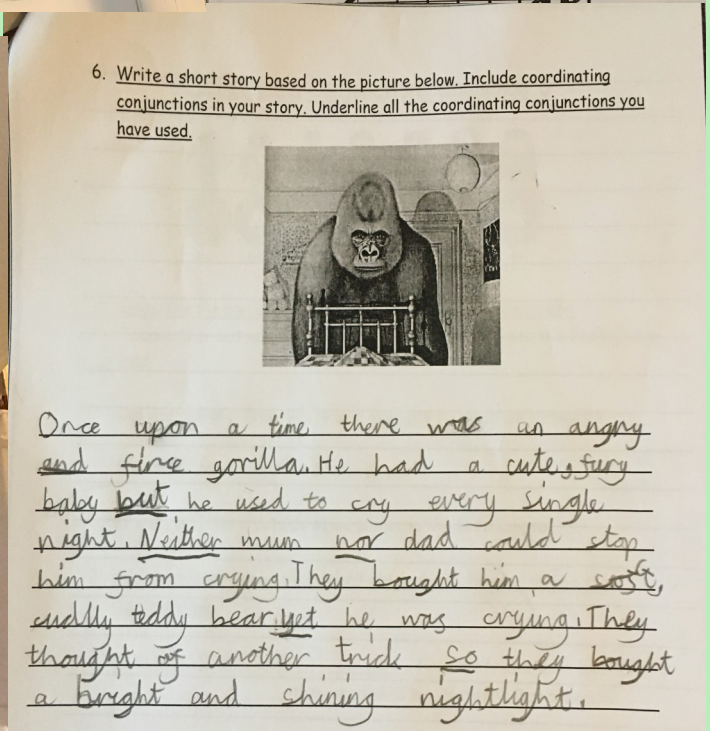 6. Write a short story based on the picture below. Include coordinating
conjunctions in your story. Underline all the coordinating conjunctions you
have used.
Once upon a time there was an angry
and firce gorilla. He had a cute, fury
baby but he used to cry every single
night. Neither mum nor dad could stop
him from crying. They bought him a soft,
cudlly teddy bear yet he was crying. They
thought of another trick so they bought
a bright and shining nightlight.